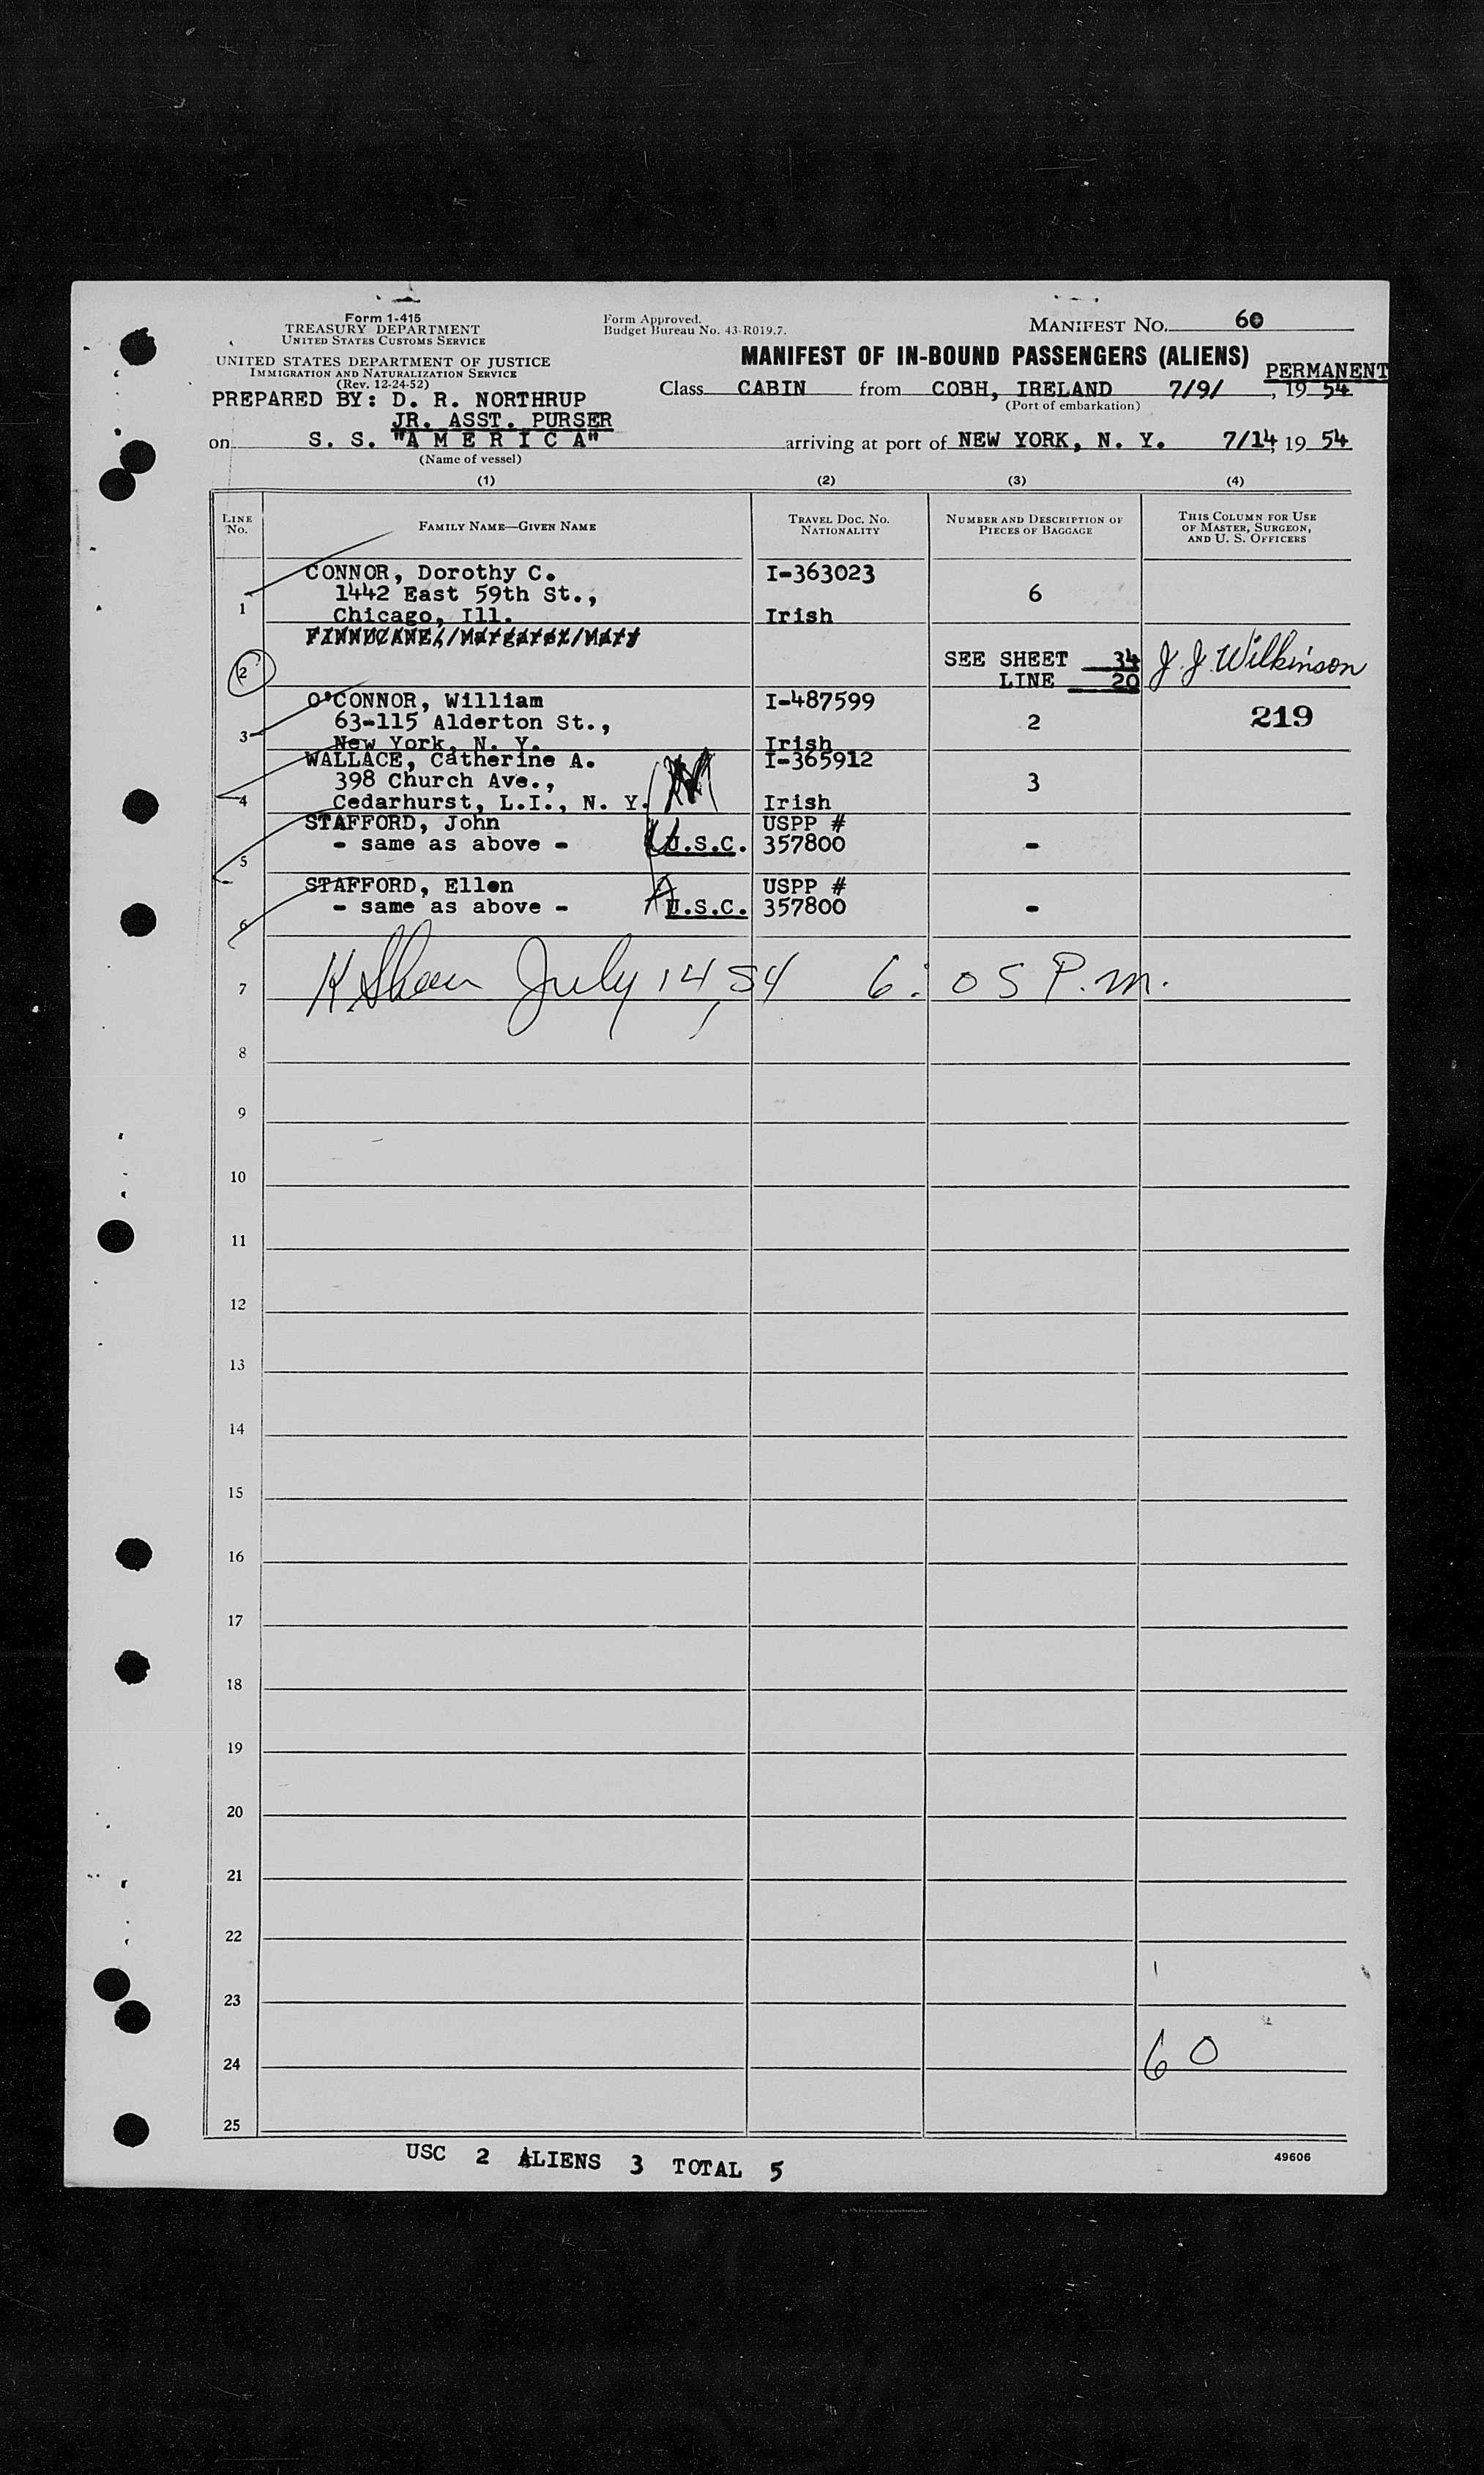 Form 1-415
TREASURY DEPARTMENT
UNITED STATES CUSTOMS SERVICE
UNITED STATES DEPARTMENT OF JUSTICE
IMMIGRATION AND NATURALIZATION SERVICE
(Rev. 12-24-52)
PREPARED BY: D. R. NORTHRUP
JR. ASST. PURSER
Form Approved.
Budget Bureau No. 43-R019.7.
MANIFEST NO. 60
MANIFEST OF IN-BOUND PASSENGERS (ALIENS)
PERMANENT
Class CABIN from COBH, IRELAND 7/9/, 19 54
(Port of embarkation)
on S. S. "A M E R I C A" arriving at port of NEW YORK, N. Y. 7/14, 19 54
(Name of vessel)
(1) (2) (3) (4)
LINE NO.
FAMILY NAME—GIVEN NAME
TRAVEL DOC. NO. NATIONALITY
NUMBER AND DESCRIPTION OF PIECES OF BAGGAGE
THIS COLUMN FOR USE OF MASTER, SURGEON, AND U. S. OFFICERS
CONNOR, Dorothy C. I-363023
1 1442 East 59th St., 6
Chicago, Ill. Irish
FINNUCANE, Margaret Mary
2 SEE SHEET 34 J. J. Wilkinson
LINE 20
O'CONNOR, William I-487599
3 63-115 Alderton St., 2 219
New York, N. Y. Irish
WALLACE, Catherine A. I-365912
4 398 Church Ave., 3
Cedarhurst, L.I., N. Y. Irish
STAFFORD, John USPP #
5 - same as above - U.S.C. 357800 -
STAFFORD, Ellen USPP #
6 - same as above - U.S.C. 357800 -
7 July 14, 54 6:05 P.m.
8
9
10
11
12
13
14
15
16
17
18
19
20
21
22
23
24 60
25
USC 2 ALIENS 3 TOTAL 5
49606